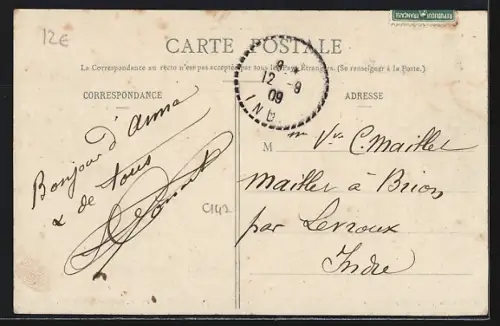 12€
REPUBLIQUE FRANCAISE
CARTE POSTALE
La Correspondance au recto n'est pas acceptée par tous les Pays Étrangers. (Se renseigner à la Poste.)
CORRESPONDANCE
ADRESSE
9
12 - 9
09
IND
Bonjour d'Anna
& de tous
C142
M me Vve C. Maillet
Maillet à Brion
par Levroux
Indre